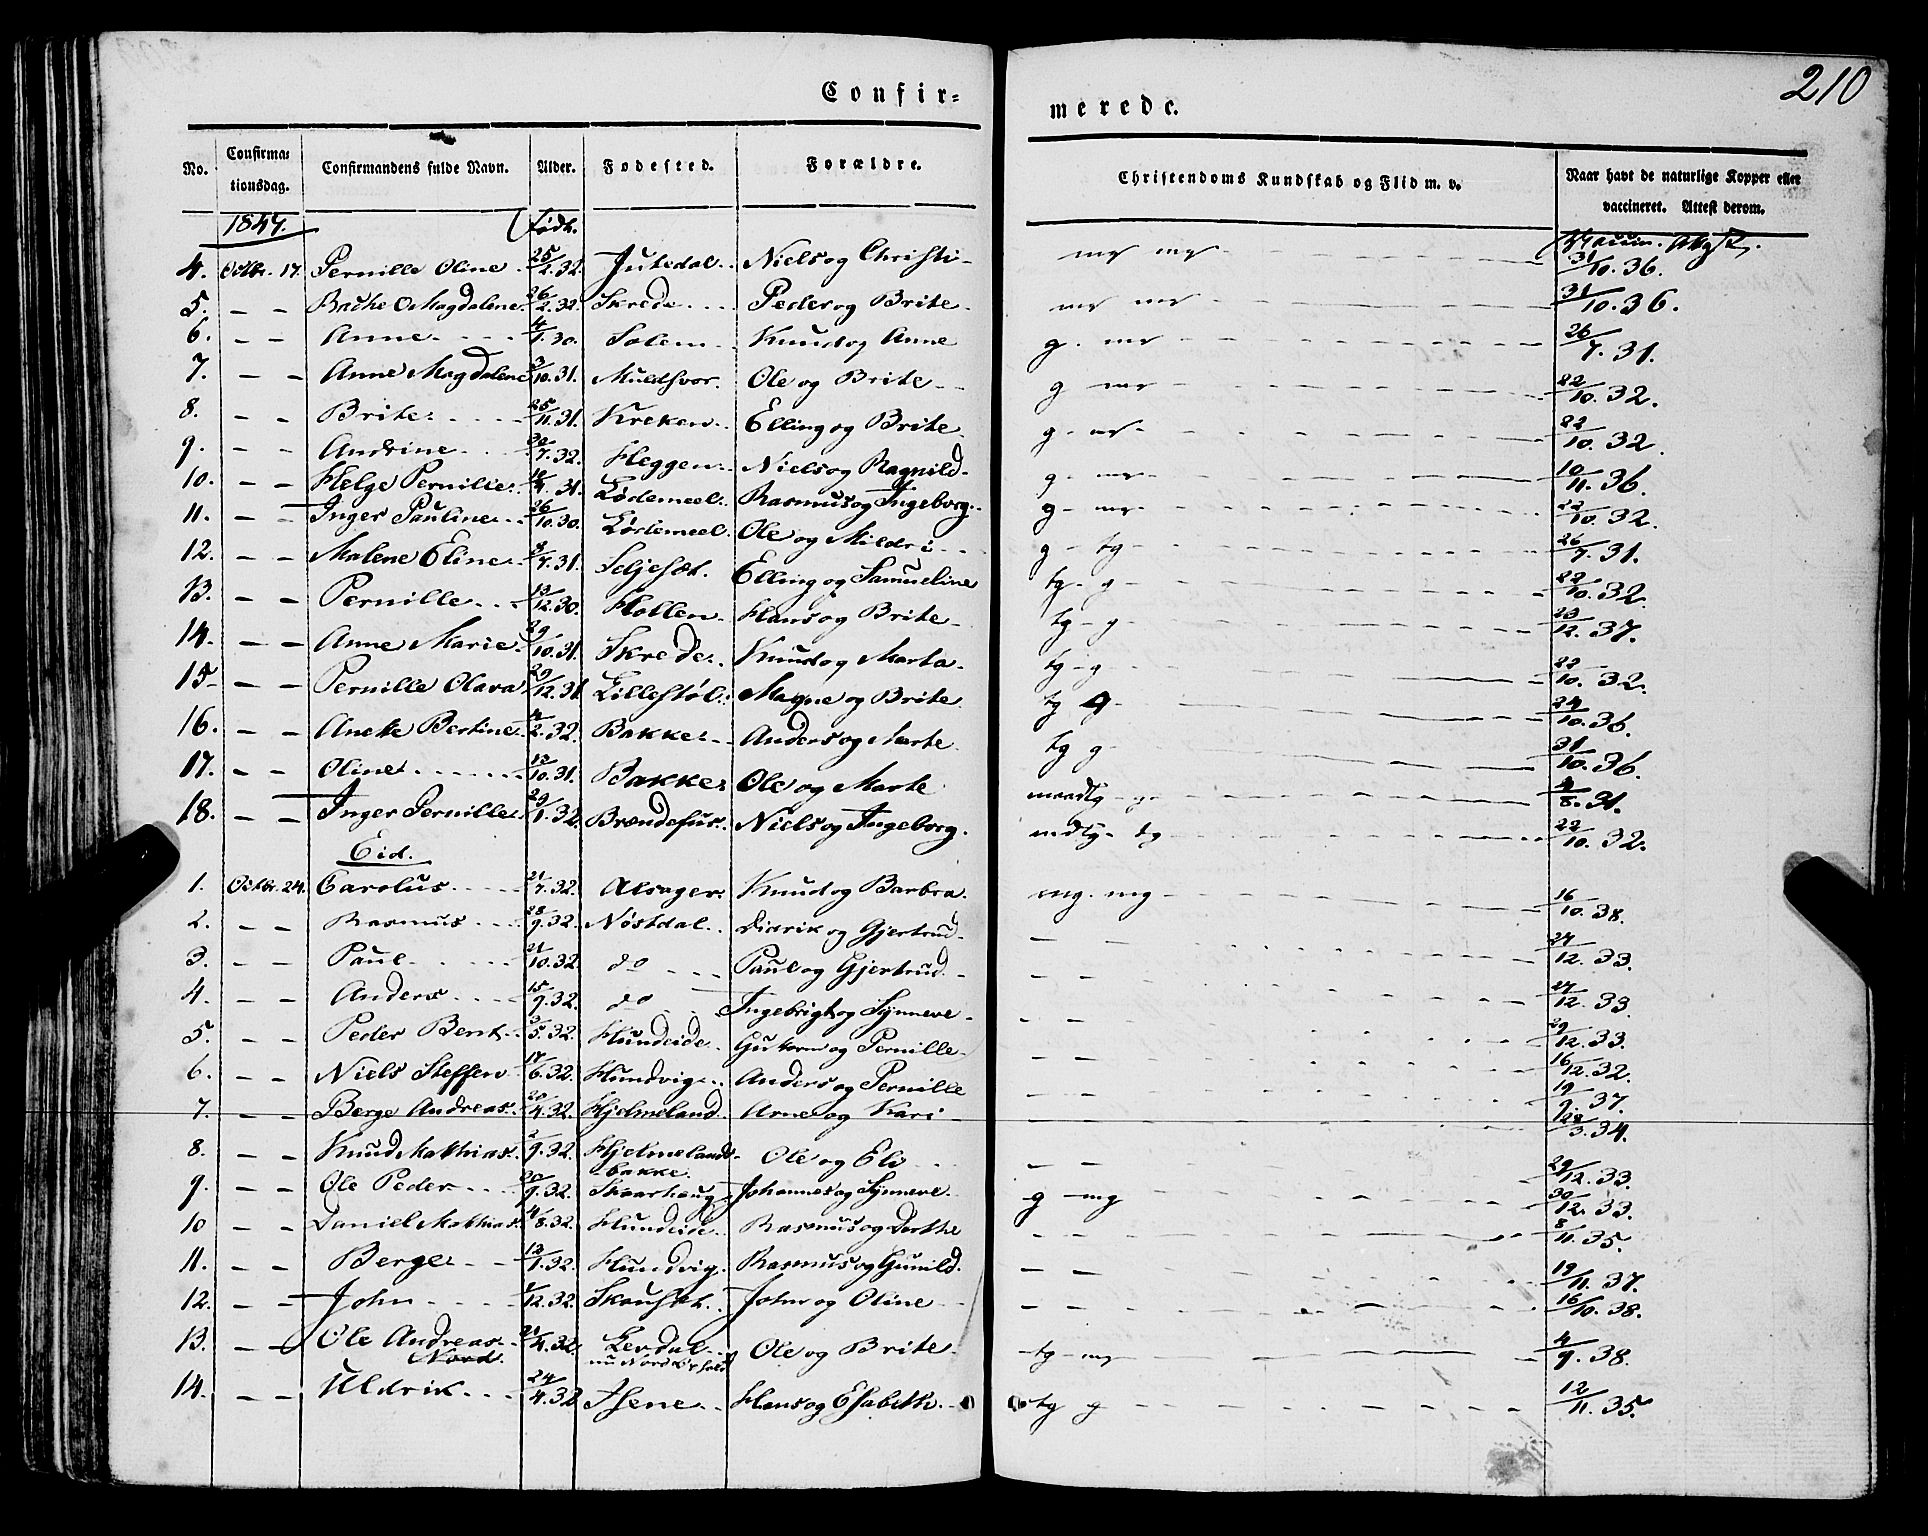 210
Confir=
merede.
No. Confirma=tionsdag. Confirmandens fulde Navn. Alder. Fødested. Forældre. Christendoms Kundskab og Flid m. v. Naar havt de naturlige Kopper eller vaccineret. Attest derom.
1847. Født.
4. Octbr. 17. Pernille Oline 25/2.32. Jutedal Niels og Christi mg mg 31/10.36.
5. Magdalene 26/2.32. Skrede Peder og Brite mg mg 31/10.36.
6. Anne 4/1.30. Solem Knud og Anne g. mg 26/7.31.
7. Anne Magdalene 3/10.31. Muldsvor Ole og Brite g mg 22/10.32.
8. Brite 25/11.31. Kreken Elling og Brite g mg 22/10.32.
9. Andrine 30/7.32. Heggen Niels og Ragnild g mg 10/11.36.
10. Helge Pernille 31. Lødemeel Rasmus og Ingeborg g mg 22/10.32.
11. Inger Pauline 26/10.30. Lødemeel Ole og Mildri g tg 26/7.31.
12. Malene Eline 31. Seljeset Elling og Samueline tg g 22/10.32.
13. Pernille 12.30. Hollen Hans og Brite tg g 23/12.37.
14. Anne Marie 29/10.31. Skrede Knud og Marta tg g 22/10.32.
15. Pernille Olava 29/12.31 Lillestøl Magne og Brite tg g 24/10.36.
16. Aneke Bertine 4/2.32. Bakke Anders og Marte tg g 31/10.36.
17. Oline 12/10.31. Bakke Ole og Marte g 4/8.31.
18. Inger Pernille 29/1.32. Brendefur Niels og Ingeborg mdtg tg 22/10.32.
Eid.
1. Octbr. 24. Carolus 21/7.32. Alsager Knud og Barbra mg. mg 16/10.38.
2. Rasmus 28/9.32. Nøstdal Didrik og Gjertrud 27/12.33.
3. Paul 21/10.32. do Paul og Gjertrud 27/12.33.
4. Anders 15/9.32. do Ingebrigt og Synneve 29/12.33.
5. Peder Bent 3/5.32. Hundeide Guttorm og Pernille 16/12.32.
6. Niels Steffen 17/6.32. Hundvig Anders og Pernille 19/9.37.
7. Berge Andreas 20/4.32. Hjelmeland Arne og Kari 3.34.
8. Knud Mathias 2/9.32. Hjelmelands-bakke Ole og Eli 29/12.33.
9. Ole Peder 30/9.32. Skaarhaug Johannes og Synneve g mg 30/12.33.
10 Daniel Mathias 4/8.32. Hundeide Rasmus og Dorthe 8/11.35.
11. Berge 12/1.32. Hundvig Rasmus og Gunild 19/11.37.
12. John 1/12.32. John og Oline 16/10.38.
13. Ole Andreas 21/4.32. Lerdal Ole og Brite tg mg 4/9.38.
Nord.
14. Uldrik 24/4.32 Isene Hans og Elsabeth tg g 12/11.35.